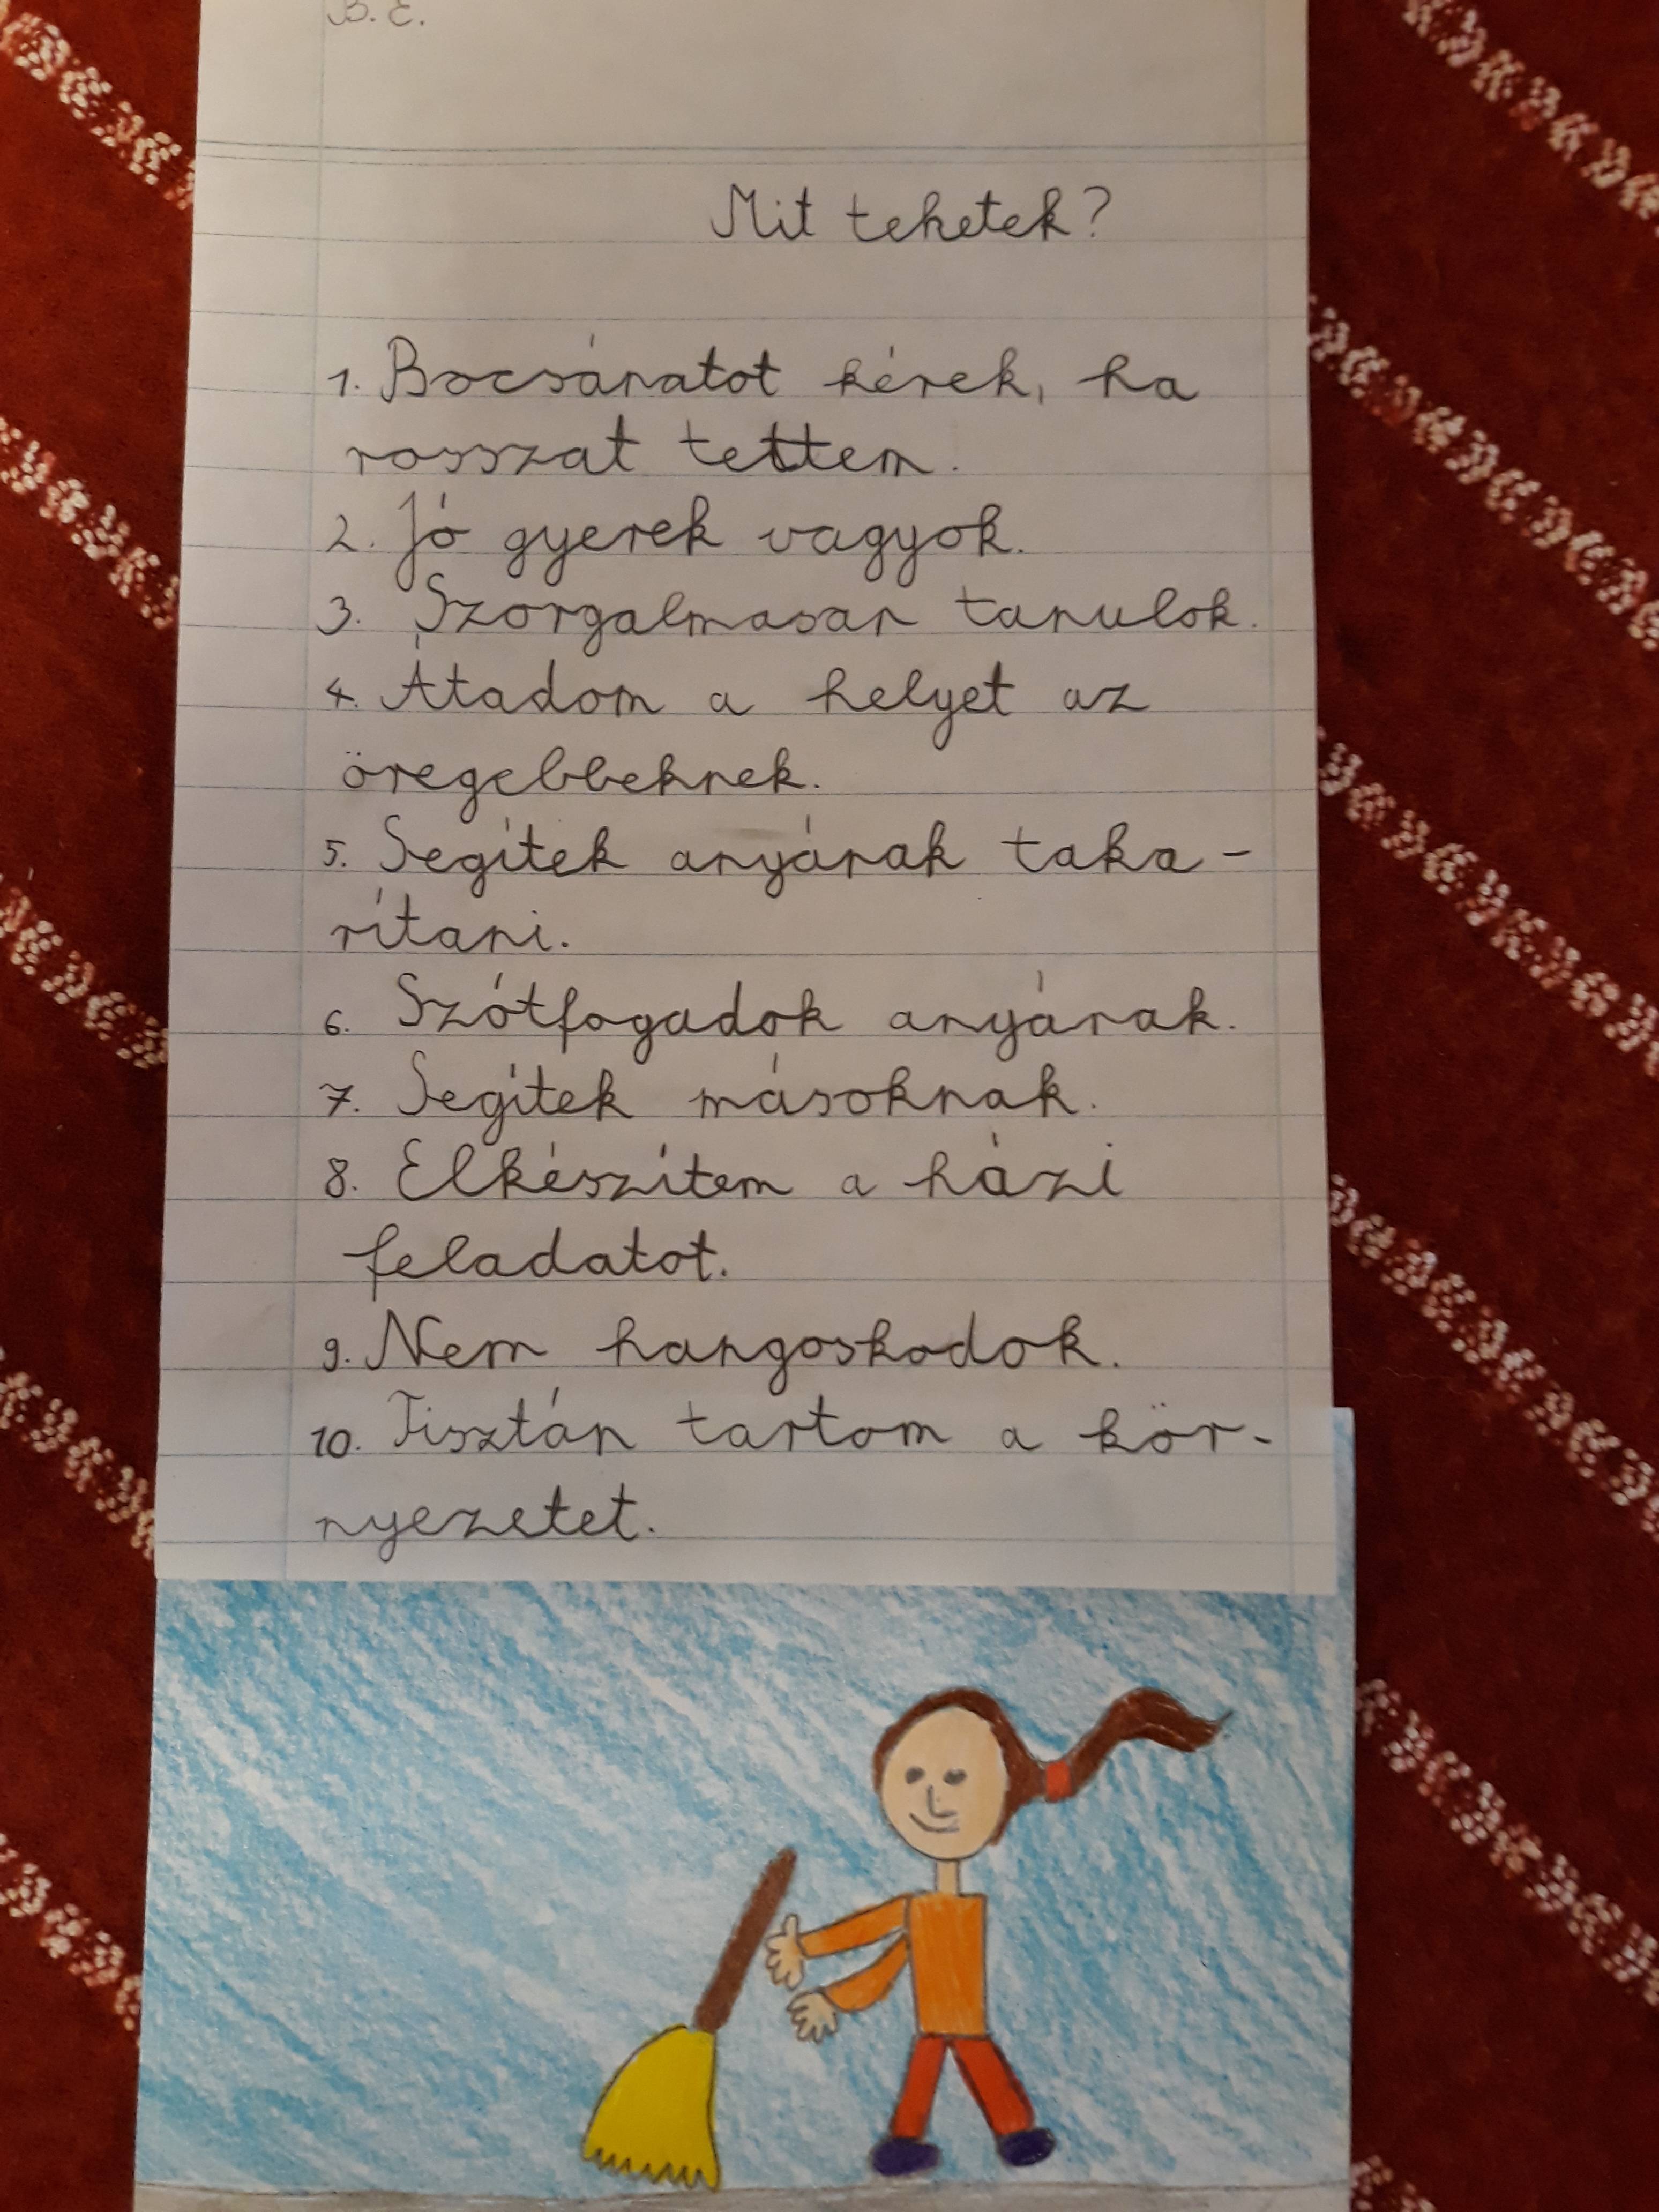 B. E.
Mit tehetek?
1. Bocsánatot kérek, ha
rosszat tettem.
2. Jó gyerek vagyok.
3. Szorgalmasan tanulok.
4. Átadom a helyet az
öregebbeknek.
5. Segítek anyának taka-
rítani.
6. Szótfogadok anyának.
7. Segítek másoknak.
8. Elkészítem a házi
feladatot.
9. Nem hangoskodok.
10. Tisztán tartom a kör-
nyezetet.